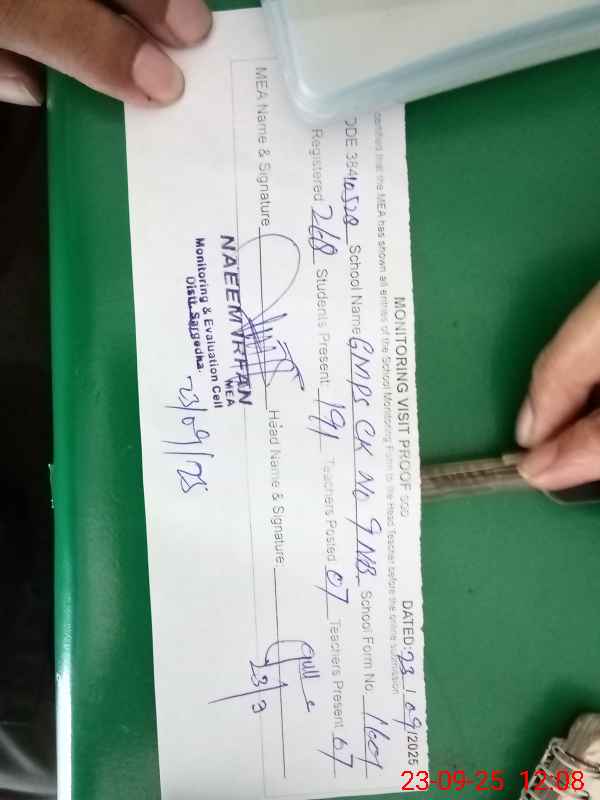 MONITORING VISIT PROOF SGD DATED: 23/09/2025
certified that the MEA has shown all entries of the School Monitoring Form to the Head Teacher before the online submission
DDE 38410528 School Name GMPS CK No 9 NB School Form No. 1604
Registered 268 Students Present: 191 Teachers Posted 07 Teachers Present 07
MEA Name & Signature Head Name & Signature:
NAEEM IRFAN
MEA
Monitoring & Evaluation Cell
Distt. Sargodha.
23/09/25
23/9
23-09-25 12:08